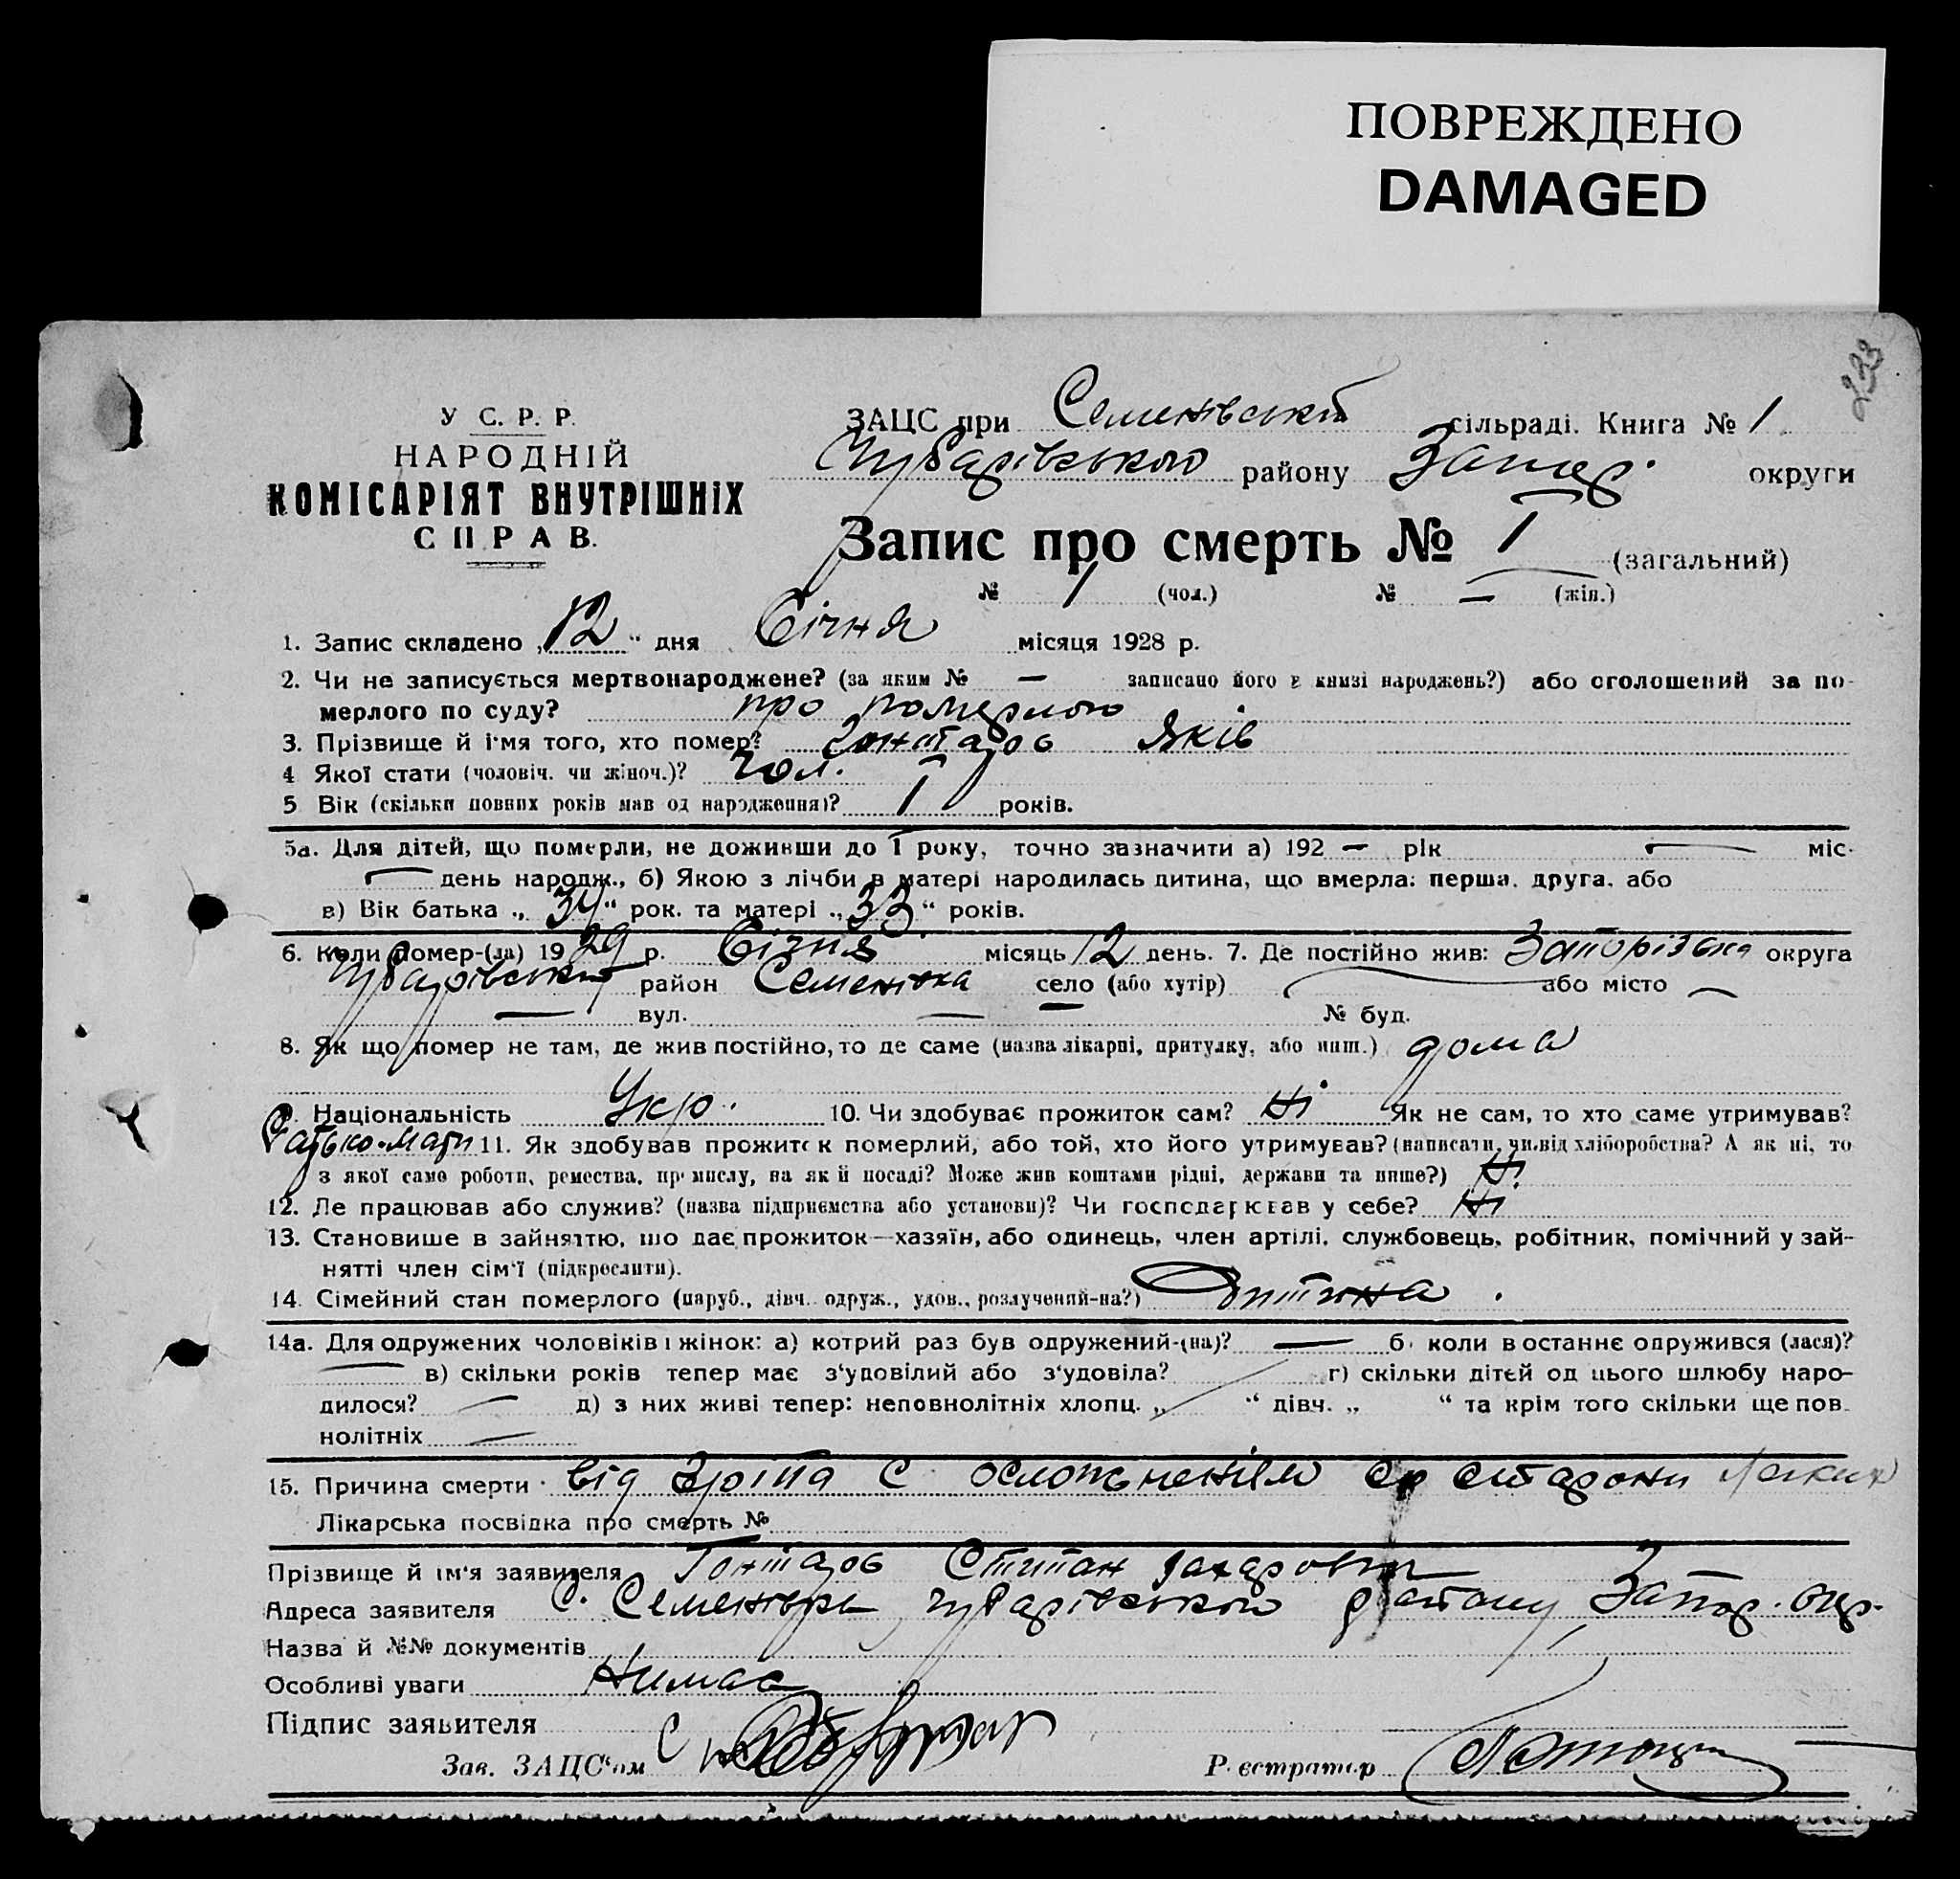 ПОВРЕЖДЕНО
DAMAGED
233
У С. Р. Р.
НАРОДНІЙ
КОМІСАРІЯТ ВНУТРІШНІХ
СПРАВ.
ЗАЦС при Семенівській сільраді. Книга № 1
Чубарівського району Запор. округи
Запис про смерть № 1 (загальний)
№ 1 (чол.) № — (жін.)
1. Запис складено „12“ дня Січня місяця 1928 р.
2. Чи не записується мертвонароджене? (за яким № — записано його в книзі народжень?) або оголошений за по-
мерлого по суду? про померлого
3. Прізвище й ім'я того, хто помер? Гонтарів Яків
4 Якої стати (чоловіч. чи жіноч.)? чол.
5 Вік (скільки повних років мав од народження)? 1 років.
5а. Для дітей, що померли, не доживши до 1 року, точно зазначити а) 192 — рік — міс.
— день народж., б) Якою з лічби в матері народилась дитина, що вмерла: перша, друга, або
в) Вік батька „34“ рок. та матері „33“ років.
6. Коли помер-(ла) 1929 р. Січня місяць 12 день. 7. Де постійно жив: Запорізька округа
Чубарівський район Семенівка село (або хутір) — або місто —
— вул. — № буд.
8. Як що помер не там, де жив постійно, то де саме (назва лікарні, притулку, або инш.) дома
9. Національність Укр. 10. Чи здобуває прожиток сам? Ні Як не сам, то хто саме утримував?
Батько-мати 11. Як здобував прожиток померлий, або той, хто його утримував? (написати, чи від хліборобства? А як ні, то
з якої саме роботи, ремества, промислу, на якій посаді? Може жив коштами рідні, держави та инше?) Ні
12. Де працював або служив? (назва підприємства або установи)? Чи господарював у себе? Ні
13. Становище в зайняттю, що дає прожиток—хазяїн, або одинець, член артілі, службовець, робітник, помічний у зай-
нятті член сім'ї (підкреслити).
14. Сімейний стан померлого (паруб., дівч. одруж., удов., розлучений-на?) Дитина.
14а. Для одружених чоловіків і жінок: а) котрий раз був одружений-(на)? — б) коли в останнє одружився (лася)?
— в) скільки років тепер має з'удовілий або з'удовіла? г) скільки дітей од цього шлюбу наро-
дилося? — д) з них живі тепер: неповнолітніх хлопц. „ “ дівч. „ “ та крім того скільки ще пов-
нолітніх —
15. Причина смерти від гріпа с осложненієм со старони легких
Лікарська посвідка про смерть №
Прізвище й ім'я заявителя Гонтарів Степан Захарович
Адреса заявителя С. Семенівка Чубарівського району Запор. окр.
Назва й №№ документів
Особливі уваги Нимає
Підпис заявителя
Зав. ЗАЦС'ом
Реєстратор